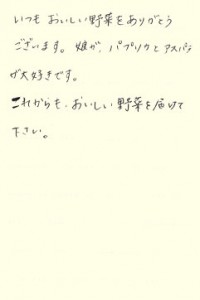 いつも おいしい野菜をありがとう
ございます。娘が、パプリカとアスパラ
が大好きです。
これからも、おいしい野菜を届けて
下さい。